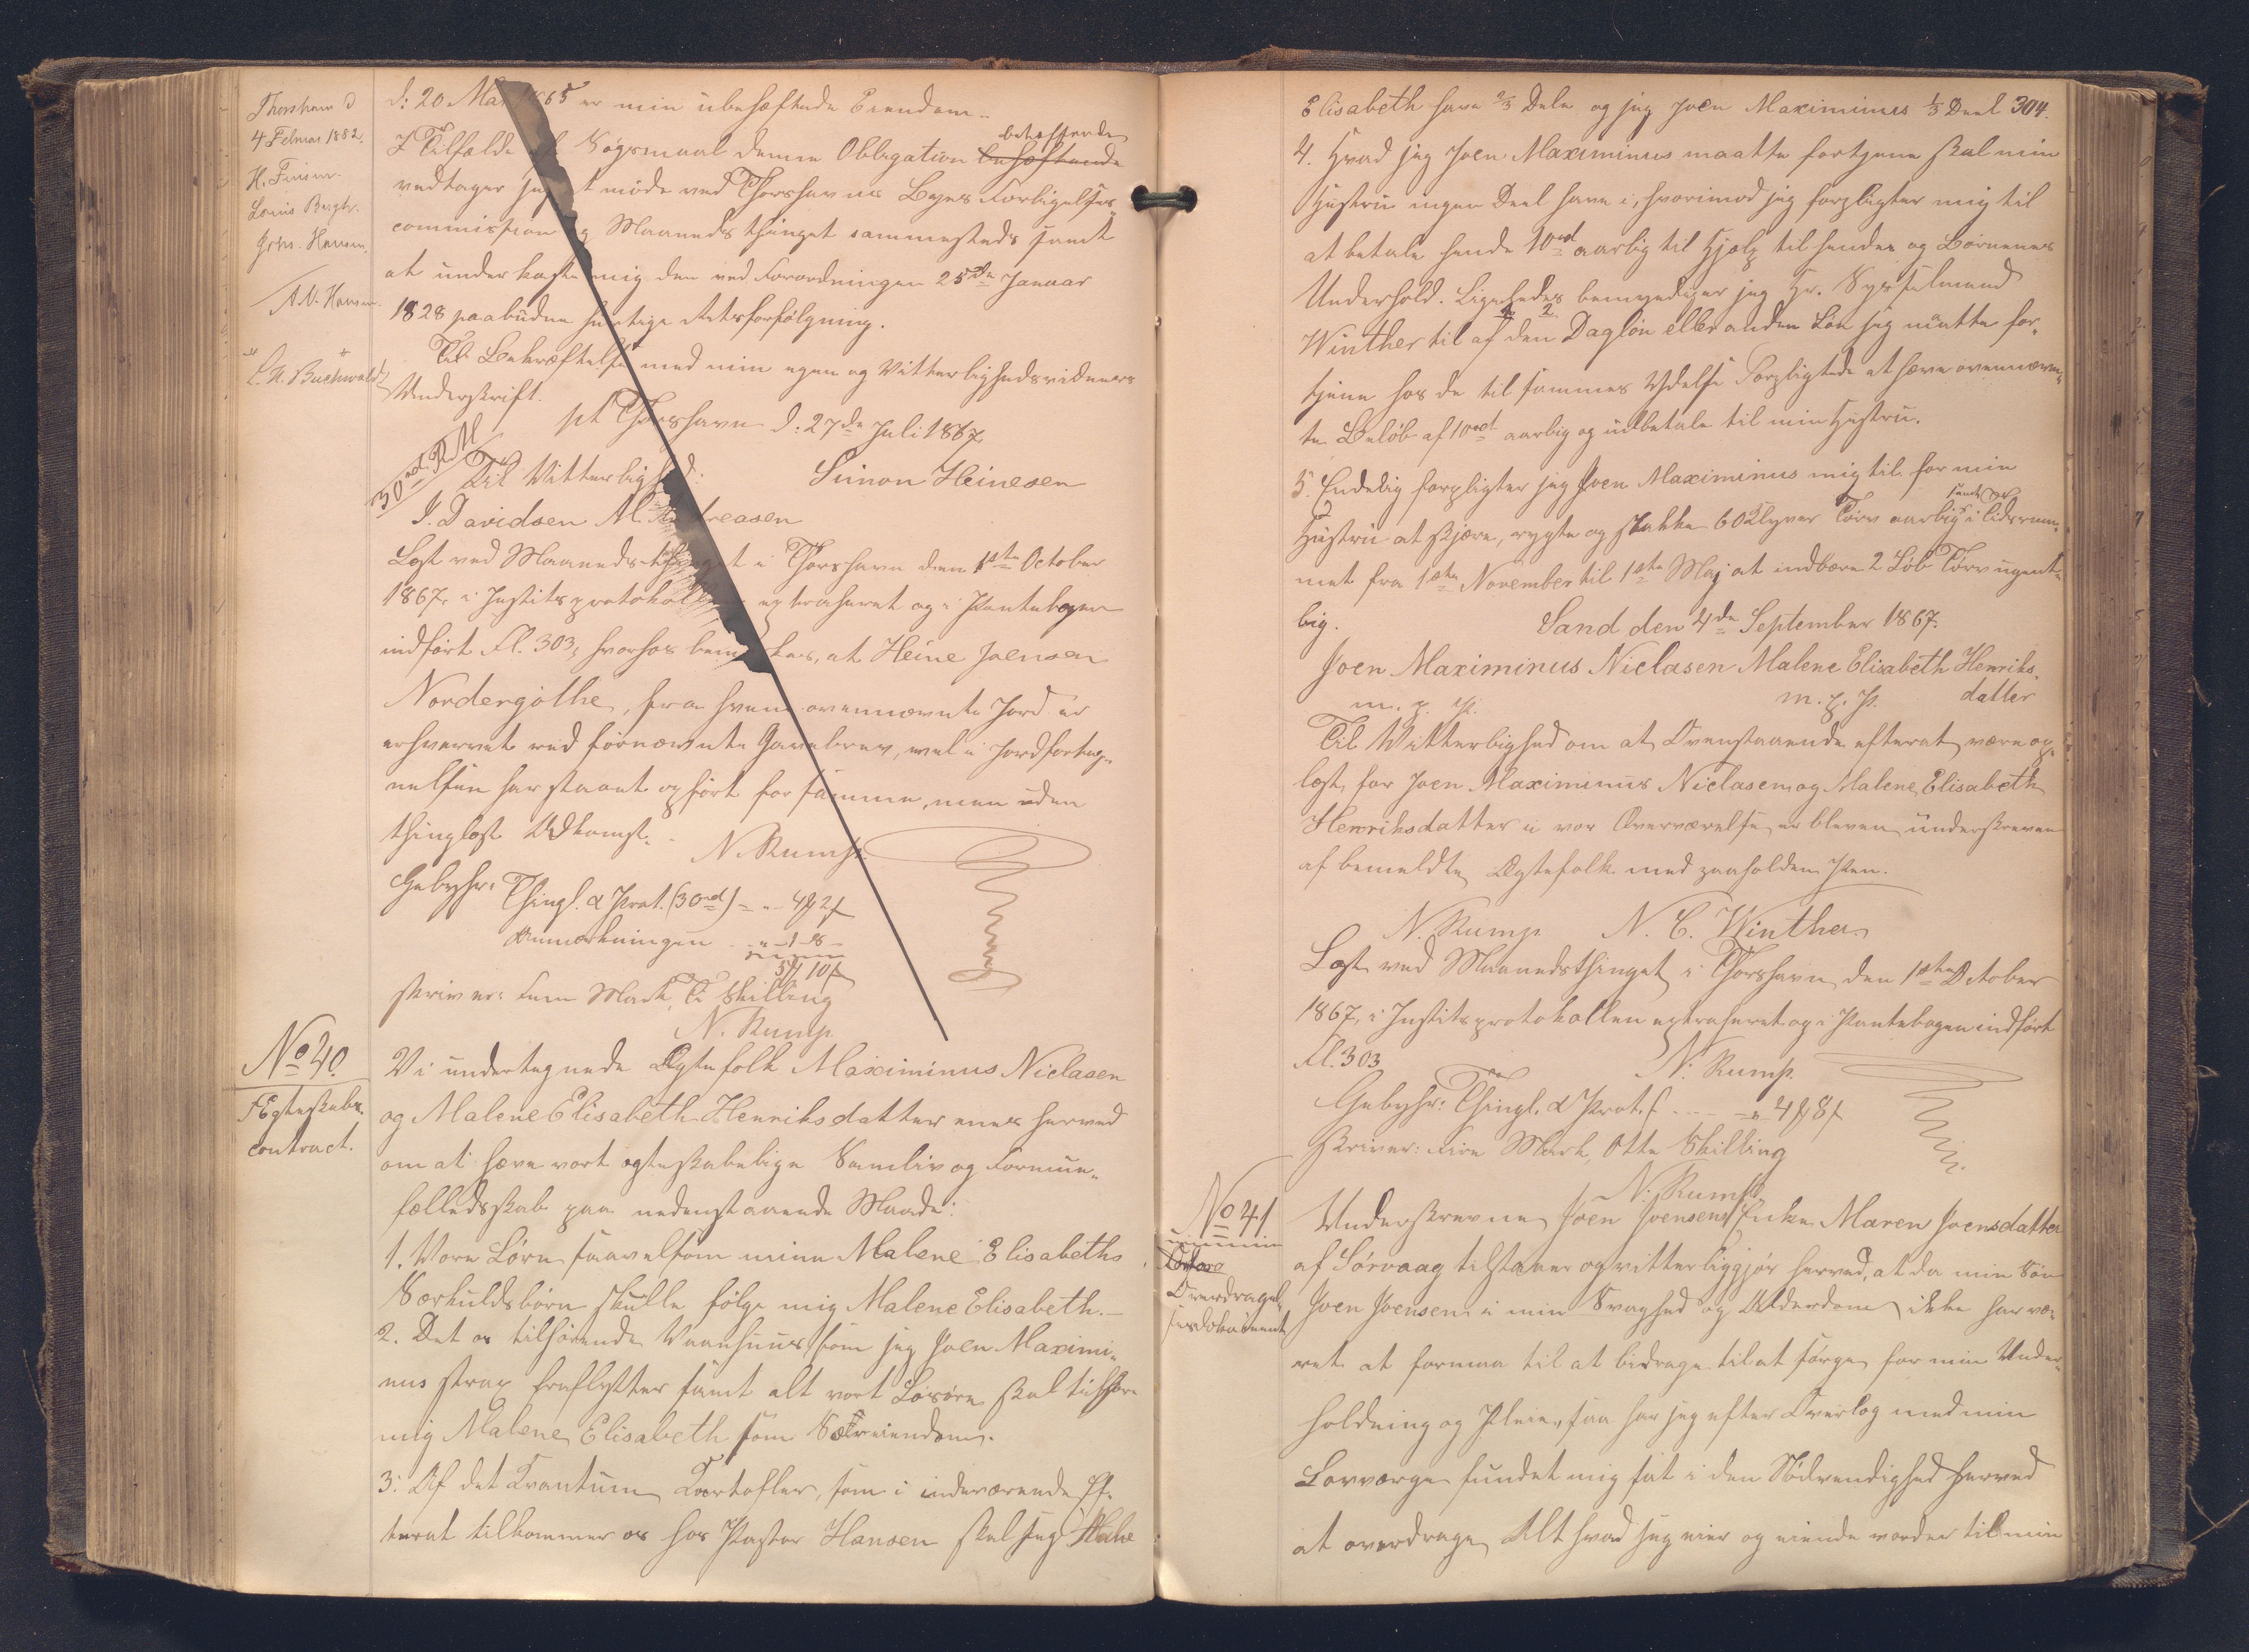 Thorshavn d
4 Februar 1882.
H. Finsen.
Louis Bergh.
Johs. Hansen.
A. N. Hansen.
C. A. Buchwaldt
d: 20 Mai 1865 er min ubehæftede Eiendom.
I Tilfælde af Søgsmaal denne Obligation behæftende betræffende
vedtager jeg at møde ved Thorshavns Byes Forligelses-
commission og Maanedsthinget sammesteds samt
at underkaste mig den ved Forordningen 25de Januar
1828 paabudne hurtige Retsforfølgning.
Til Bekræftelse med min egen og Vitterlighedsvidners
Underskrift.
pt Thorshavn d: 27de Juli 1867.
30 rd. RM
Til Vitterlighed: Simon Heinesen
J. Davidsen M. Andreasen
Læst ved Maanedsthinget i Thorshavn den 1ste October
1867, i Justitsprotokollen extraheret og i Pantebogen
indført Fl. 303, hvorhos bemærkes, at Heine Joensen
Nordergøthe, fra hvem ovennævnte Jord er
erhvervet ved førnævnte Gavebrev, vel i Jordforteg-
nelsen har staaet opført for samme, men uden
thinglæst Adkomst.
N. Rump.
Gebyhr: Thingl. & Prot. (30 rd) = " 4 2
Anmærkningen " 1 8
5 10
skriver: Fem Mark, Ti Skilling
N. Rump
No 40.
Ægteskabs-
contract.
Vi undertegnede Ægtefolk Maximinus Niclasen
og Malene Elisabeth Henriksdatter enes herved
om at hæve vort ægteskabelige Samliv og Formue-
fælledsskab paa nedenstaaende Maade:
1. Vore Børn saavelsom mine Malene Elisabeths
Særkuldsbørn skulle følge mig Malene Elisabeth.
2. Det os tilhørende Vaanhuus som jeg Joen Maximi-
nus strax fraflytter samt alt vort Løsøre skal tilhøre
mig Malene Elisabeth som Særeiendom.
3. Af det Kvantum Kartofler, som i indeværende Ef-
teraar tilkommer os hos Pastor Hansen skal jeg Malene
Elisabeth have 2/3 Dele og jeg Joen Maximinus 1/3 Deel 304.
4. Hvad jeg Joen Maximinus maatte fortjene skal min
Hustru ingen Deel have i, hvorimod jeg forpligter mig til
at betale hende 10 rd aarlig til Hjælp til hendes og Børnenes
Underhold. Ligeledes bemyndiger jeg Hr. Sysselmand
Winther til af den Dagløn eller anden Løn jeg maatte for-
tjene hos de til sammes Ydelse Forpligtede at hæve ovennævn-
te Beløb af 10 rd aarlig og udbetale til min Hustru.
5. Endelig forpligter jeg Joen Maximinus mig til for min
Hustru at skjære, røgte og stakke 60 Klyver Tørv aarlig samt i Tidsrum-
met fra 1ste November til 1ste Maj at indbære 2 Løb Tørv ugent-
lig.
Sand den 4de September 1867.
Joen Maximinus Niclasen Malene Elisabeth Henriks-
m. p. P. m. p. P. datter
Til Vitterlighed om at Ovenstaaende efterat være op-
læst for Joen Maximinus Niclasen og Malene Elisabeth
Henriksdatter i vor Overværelse er bleven underskreven
af bemeldte Ægtefolk med paaholden Pen.
N. Rump N. C. Winther
Læst ved Maanedsthinget i Thorshavn den 1ste October
1867, i Justitsprotokollen extraheret og i Pantebogen indført
Fl. 303
N. Rump.
Gebyhr: Thingl. & Prot. = " 4 8
skriver: Fire Mark, Otte Skilling
N. Rump
No 41
Overdragel-
sesdokument
Underskrevne Joen Joensens Enke Maren Joensdatter
af Sørvaag tilstaaer og vitterliggjør herved, at da min Søn
Joen Joensen i min Svaghed og Alderdom ikke har væ-
ret at formaa til at bidrage til at sørge for min Under-
holdning og Pleie, saa har jeg efter Overlæg med min
Lavværge fundet mig sat i den Nødvendighed herved
at overdrage Alt hvad jeg eier og eiende vorder til min